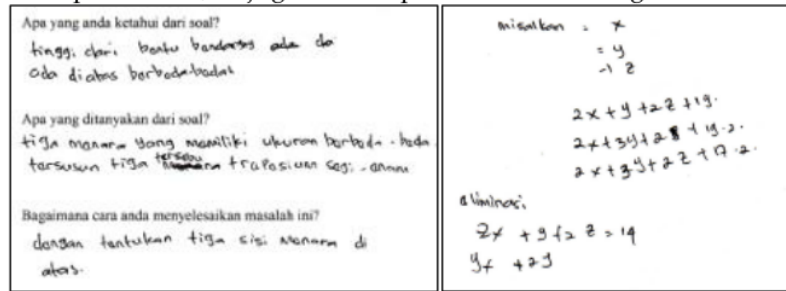 Apa yang anda ketahui dari soal?
tinggi dari
ada diatas berbeda-beda
Apa yang ditanyakan dari soal?
tiga manara yang memiliki ukuran berbeda-beda
tersusun tiga tersebut trapesium segi-enam
Bagaimana cara anda menyelesaikan masalah ini?
dengan tentukan tiga sisi menara di
atas.
misalkan : x
= y
z
2x + y + 2z + 19.
2x + 3y + 2 + 19.2.
2x + 3y + 2z + 17.2.
eliminasi
2x + y + 2z = 19
yx + 2y